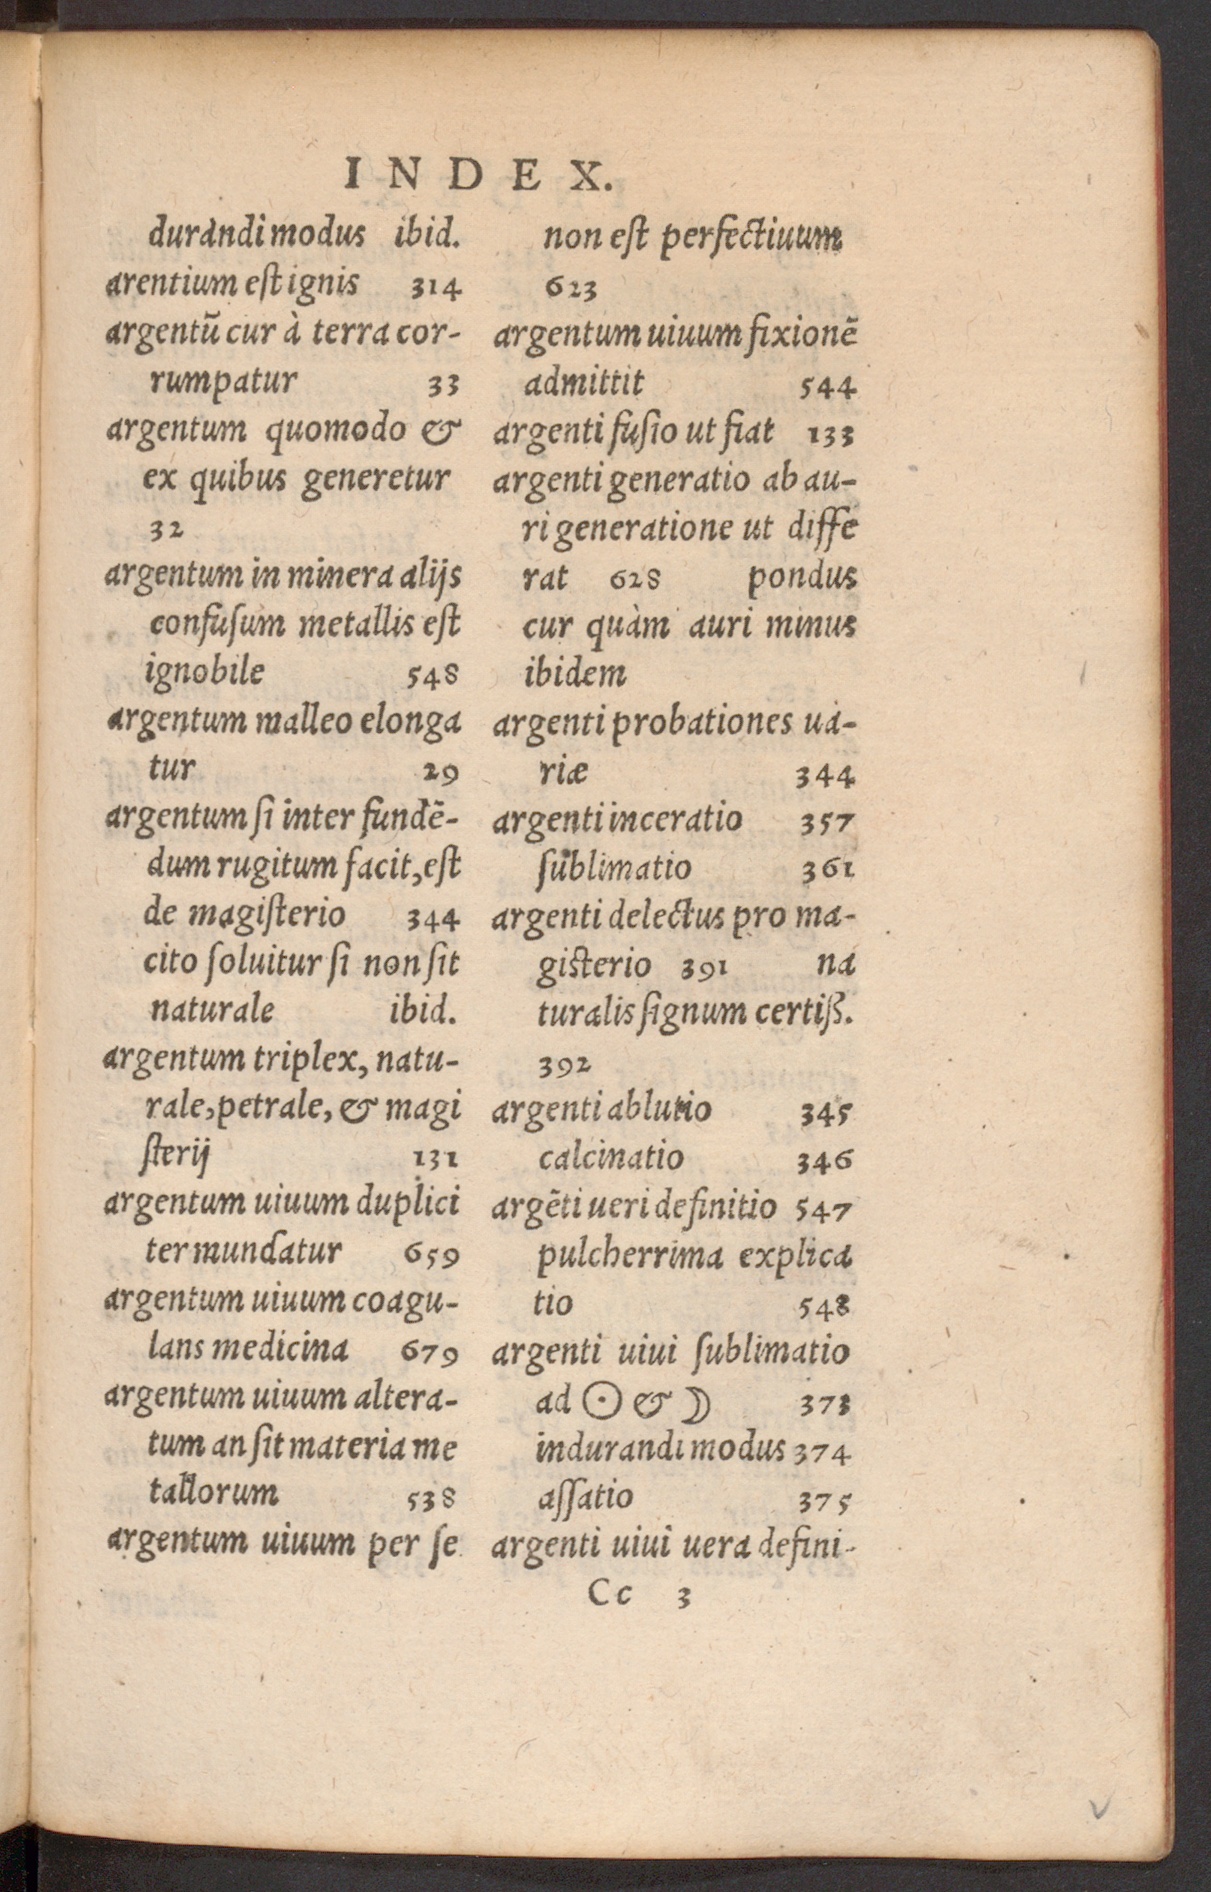 INDEX.
durandi modus ibid.
arentium eſt ignis 314
argentū cur à terra cor-
rumpatur 33
argentum quomodo &
ex quibus generetur
32
argentum in minera alijs
confuſum metallis eſt
ignobile 548
argentum malleo elonga
tur 29
argentum ſi inter fundē-
dum rugitum facit, eſt
de magiſterio 344
cito ſoluitur ſi non ſit
naturale ibid.
argentum triplex, natu-
rale, petrale, & magi
ſterij 131
argentum uiuum duplici
ter mundatur 659
argentum uiuum coagu-
lans medicina 679
argentum uiuum altera-
tum an ſit materia me
tallorum 538
argentum uiuum per ſe
non eſt perfectiuum
623
argentum uiuum fixionē
admittit 544
argenti fuſio ut fiat 133
argenti generatio ab au-
ri generatione ut diffe
rat 628 pondus
cur quàm auri minus
ibidem
argenti probationes ua-
riæ 344
argenti inceratio 357
ſublimatio 361
argenti delectus pro ma-
giſterio 391 na
turalis ſignum certiß.
392
argenti ablutio 345
calcinatio 346
argēti ueri definitio 547
pulcherrima explica
tio 548
argenti uiui ſublimatio
ad ☉ & ☽ 373
indurandi modus 374
aſſatio 375
argenti uiui uera defini-
Cc 3